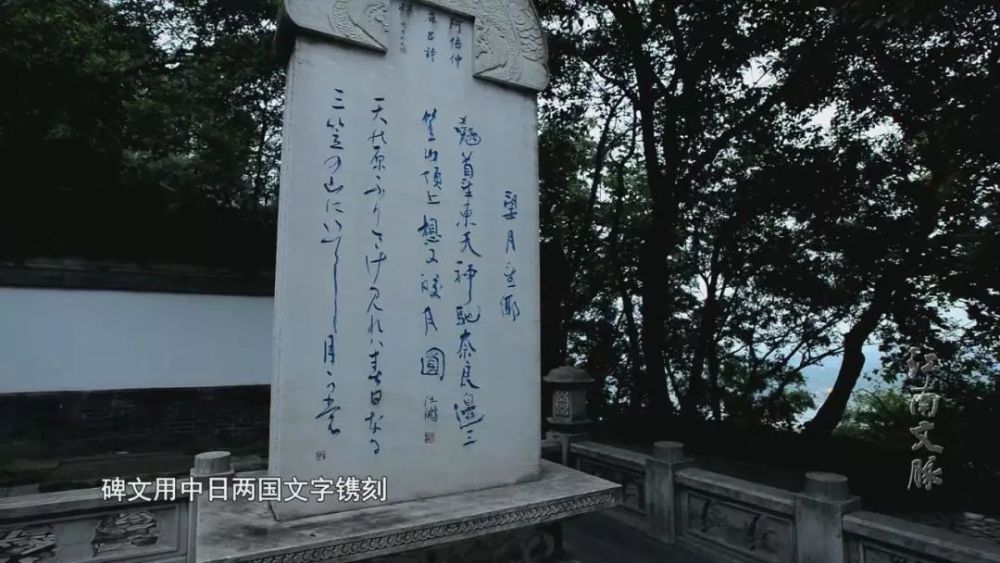 阿倍仲
麻吕詩
望月望鄉
翹首望東天神馳奈良邊三
笠山頂上想又皎月圓
天の原ふりさけ見れバ春日なる
三笠の山にいでし月かも
江南文脉
碑文用中日两国文字镌刻